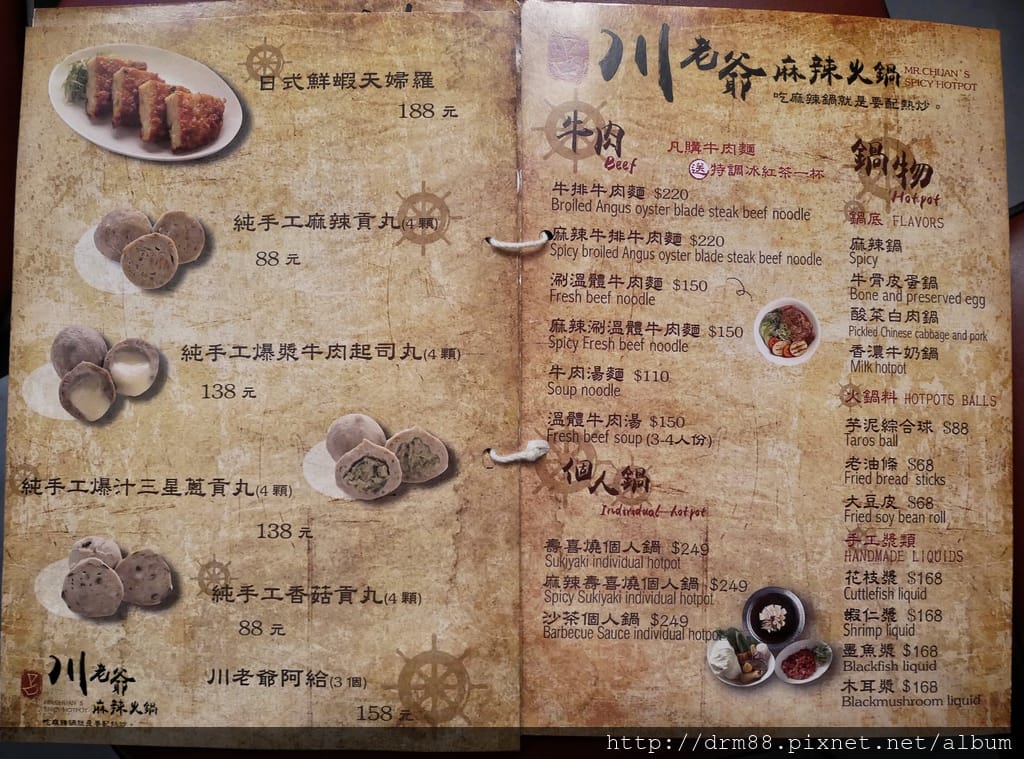 日式鮮蝦天婦羅
188 元
純手工麻辣貢丸(4 顆)
88 元
純手工爆漿牛肉起司丸(4 顆)
138 元
純手工爆汁三星蔥貢丸(4 顆)
138 元
純手工香菇貢丸(4 顆)
88 元
川老爺阿給(3 個)
158 元
川老爺
MR.CHUAN'S
SPICY HOTPOT
麻辣火鍋
吃麻辣鍋就是要配熱炒。
川老爺麻辣火鍋
MR.CHUAN'S
SPICY HOTPOT
吃麻辣鍋就是要配熱炒。
牛肉
Beef
凡購牛肉麵
送特調冰紅茶一杯
牛排牛肉麵 $220
Broiled Angus oyster blade steak beef noodle
麻辣牛排牛肉麵 $220
Spicy broiled Angus oyster blade steak beef noodle
涮溫體牛肉麵 $150
Fresh beef noodle
麻辣涮溫體牛肉麵 $150
Spicy Fresh beef noodle
牛肉湯麵 $110
Soup noodle
溫體牛肉湯 $150
Fresh beef soup (3-4人份)
個人鍋
Individual hotpot
壽喜燒個人鍋 $249
Sukiyaki individual hotpot
麻辣壽喜燒個人鍋 $249
Spicy Sukiyaki individual hotpot
沙茶個人鍋 $249
Barbecue Sauce individual hotpot
鍋物
Hotpot
鍋底 FLAVORS
麻辣鍋
Spicy
牛骨皮蛋鍋
Bone and preserved egg
酸菜白肉鍋
Pickled Chinese cabbage and pork
香濃牛奶鍋
Milk hotpot
火鍋料 HOTPOTS BALLS
芋泥綜合球 $88
Taros ball
老油條 $68
Fried bread sticks
大豆皮 $68
Fried soy bean roll
手工漿類
HANDMADE LIQUIDS
花枝漿 $168
Cuttlefish liquid
蝦仁漿 $168
Shrimp liquid
墨魚漿 $168
Blackfish liquid
木耳漿 $168
Blackmushroom liquid
http://drm88.pixnet.net/album